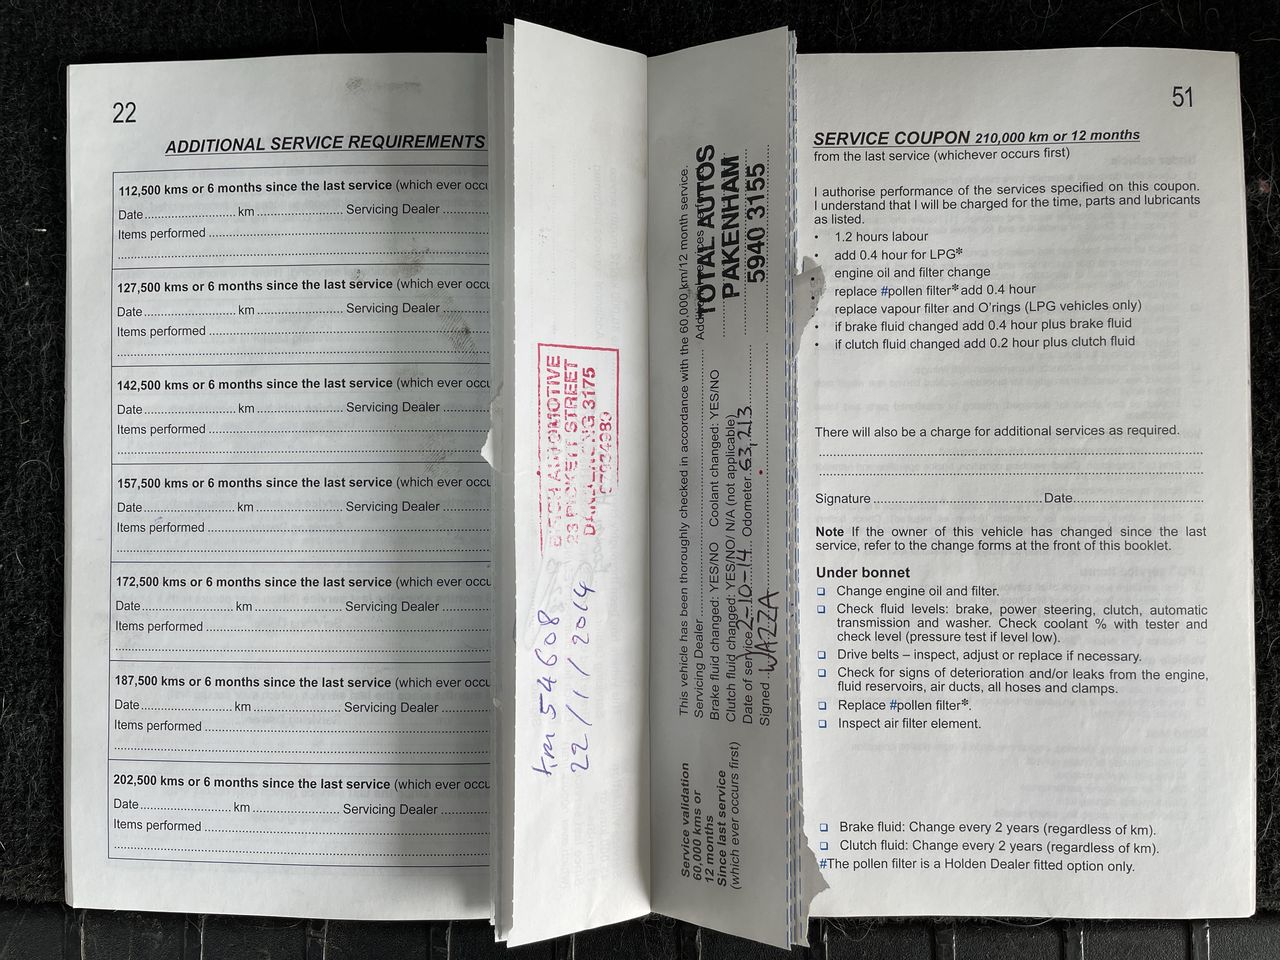 22
ADDITIONAL SERVICE REQUIREMENTS
112,500 kms or 6 months since the last service (which ever
Date.............................. km ............................ Servicing Dealer ..............
Items performed ..............................................................................
127,500 kms or 6 months since the last service (which ever
Date.............................. km ............................ Servicing Dealer ..............
Items performed ..............................................................................
142,500 kms or 6 months since the last service (which ever
Date.............................. km ............................ Servicing Dealer ..............
Items performed ..............................................................................
157,500 kms or 6 months since the last service (which ever
Date.............................. km ............................ Servicing Dealer ..............
Items performed ..............................................................................
172,500 kms or 6 months since the last service (which ever
Date.............................. km ............................ Servicing Dealer ..............
Items performed ..............................................................................
187,500 kms or 6 months since the last service (which ever
Date.............................. km ............................ Servicing Dealer ..............
Items performed ..............................................................................
202,500 kms or 6 months since the last service (which ever
Date.............................. km ............................ Servicing Dealer ..............
Items performed ..............................................................................
AUTOMOTIVE
STREET
3175
km 54608
22/1/2014
Service validation
60,000 kms or
12 months
Since last service
(which ever occurs first)
This vehicle has been thoroughly checked in accordance with the 60,000 km/12 month service.
Servicing Dealer
Brake fluid changed: YES/NO Coolant changed: YES/NO
Clutch fluid changed: YES/NO/ N/A (not applicable)
Date of service 2-10-14 Odometer 63,213
Signed WAZZA
TOTAL AUTOS
PAKENHAM
5940 3155
51
SERVICE COUPON 210,000 km or 12 months
from the last service (whichever occurs first)
I authorise performance of the services specified on this coupon.
I understand that I will be charged for the time, parts and lubricants
as listed.
• 1.2 hours labour
• add 0.4 hour for LPG*
• engine oil and filter change
• replace #pollen filter* add 0.4 hour
• replace vapour filter and O'rings (LPG vehicles only)
• if brake fluid changed add 0.4 hour plus brake fluid
• if clutch fluid changed add 0.2 hour plus clutch fluid
There will also be a charge for additional services as required.
Signature .................................................. Date....................................
Note If the owner of this vehicle has changed since the last
service, refer to the change forms at the front of this booklet.
Under bonnet
❑ Change engine oil and filter.
❑ Check fluid levels: brake, power steering, clutch, automatic
transmission and washer. Check coolant % with tester and
check level (pressure test if level low).
❑ Drive belts – inspect, adjust or replace if necessary.
❑ Check for signs of deterioration and/or leaks from the engine,
fluid reservoirs, air ducts, all hoses and clamps.
❑ Replace #pollen filter*.
❑ Inspect air filter element.
❑ Brake fluid: Change every 2 years (regardless of km).
❑ Clutch fluid: Change every 2 years (regardless of km).
#The pollen filter is a Holden Dealer fitted option only.